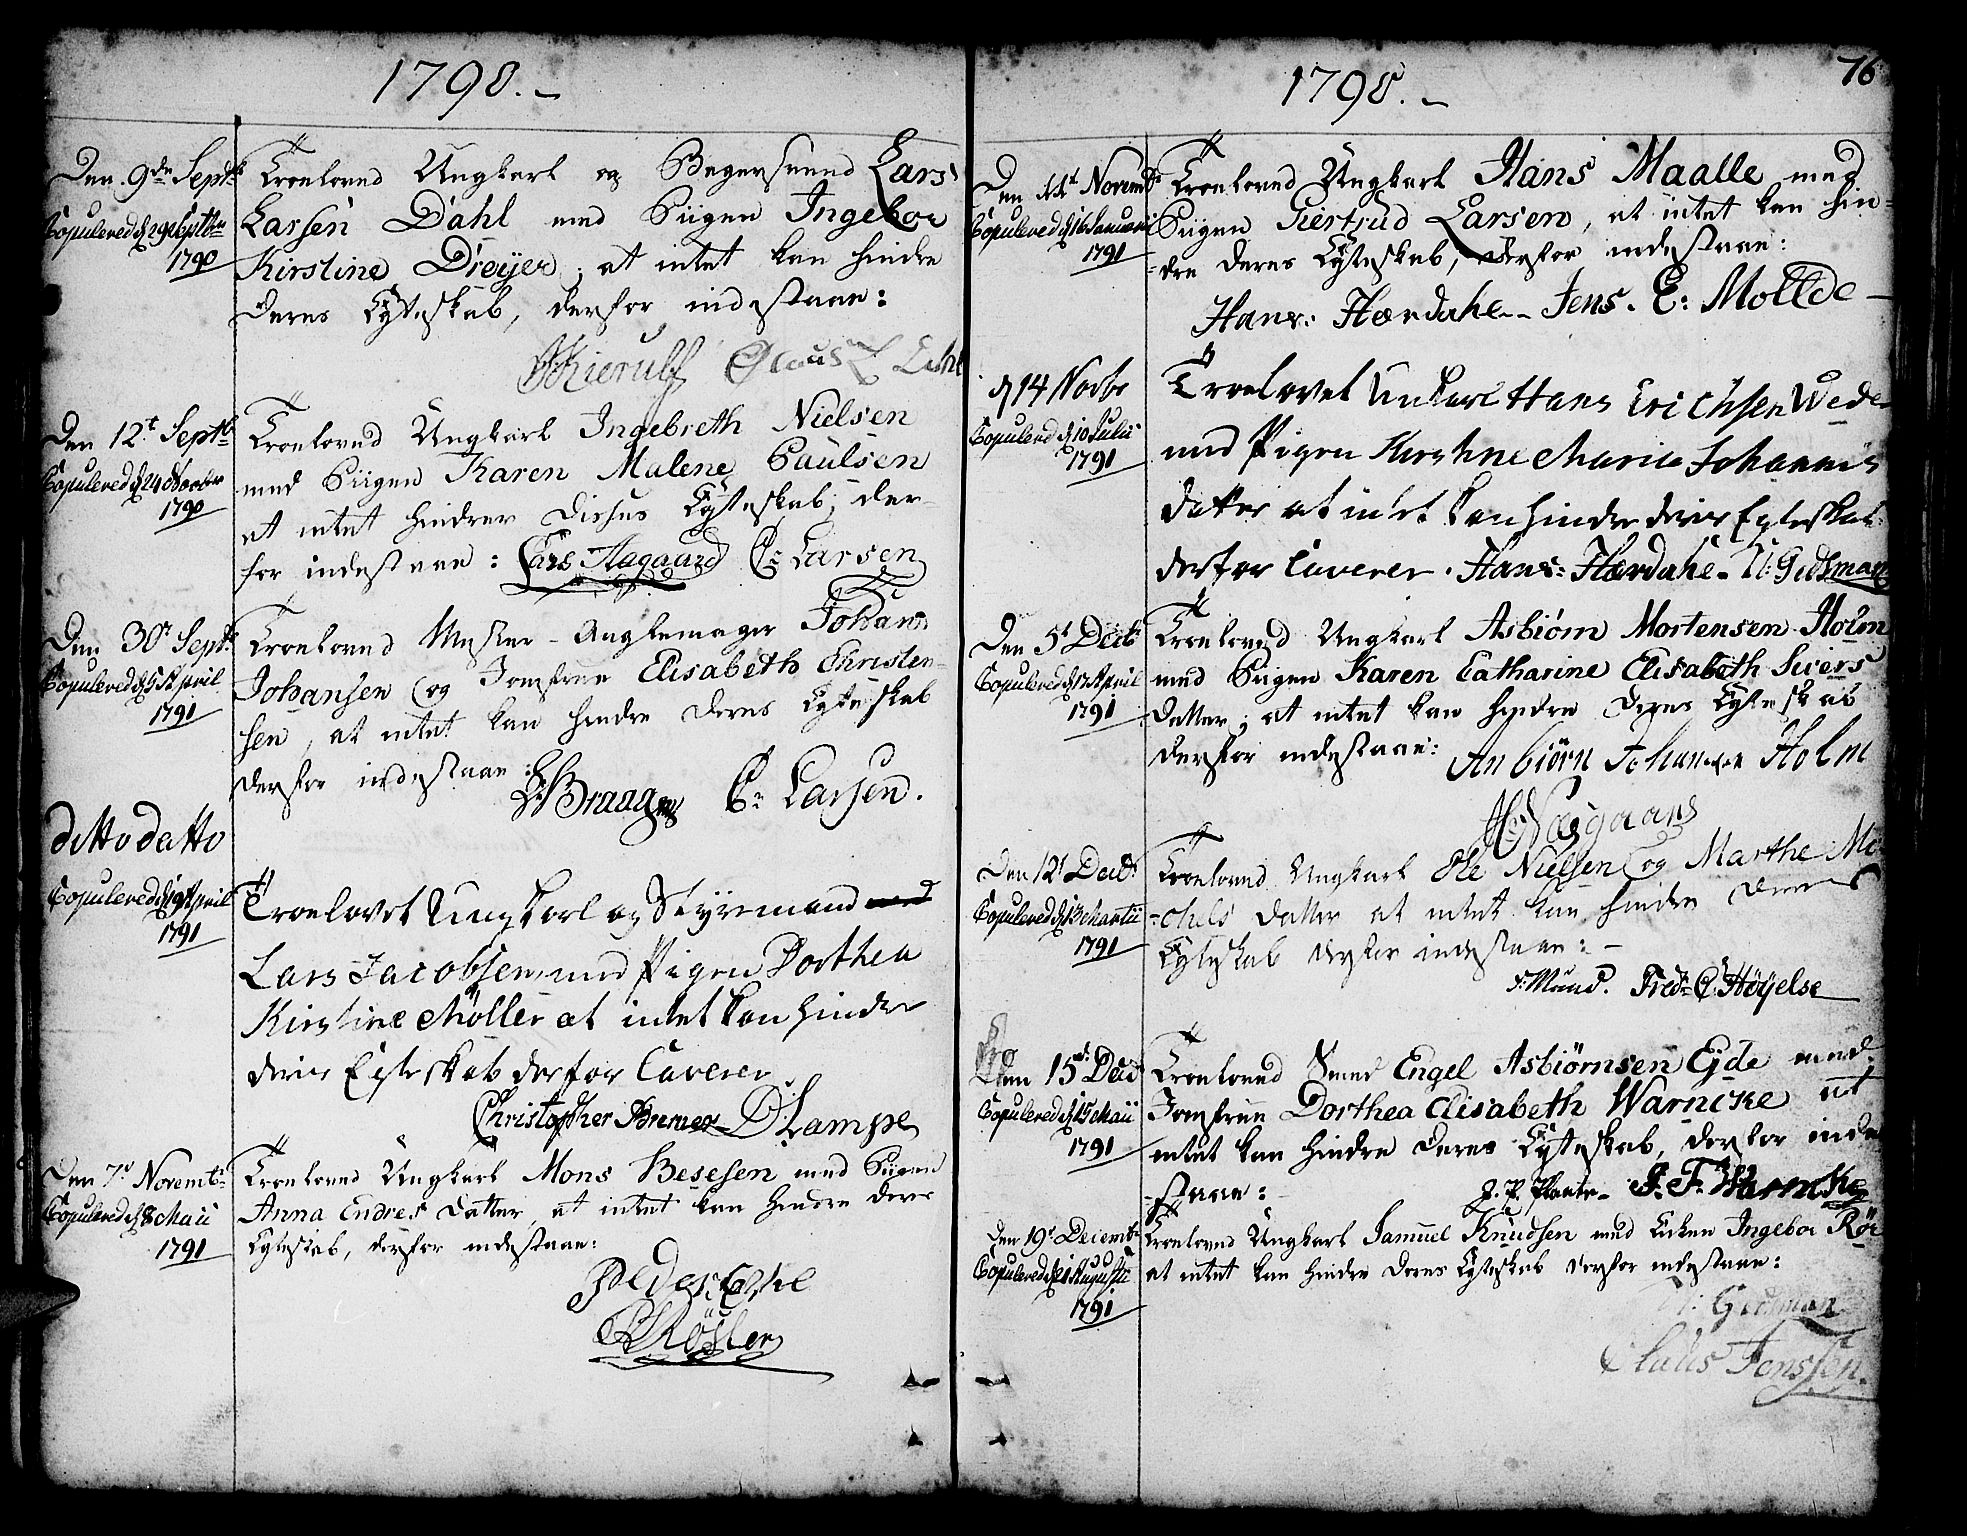 1790.
Den 9de Septb
Copulered d 29 Septbr
1790
Troeloved Ungkarl og Bagersvend Lars
Larsen Dahl med Piigen Ingebor
Kirstine Dreyer, at intet kan hindre
deres Egteskab, derfor indestaae:
Kierulf Dahl
Den 12t Septb
Copulered d 24 Novbr
1790
Troeloved Ungkarl Ingebreth Nielsen
med Piigen Karen Malene Paulsen
at intet hindrer disses Egteskab, der-
for indestaae: Lars Aagaard Cs Larsen
Den 30t Septb
Copulered d 5 April
1791
Troeloved Mester Johan
Johansen og Jomfrue Elisabeth Christen-
sen, at intet kan hindre deres Egteskab
derfor indestaae:
Braag Cs Larsen.
ditto datto
Copulered d 19 April
1791
Troelovet Ungkarl og Styremand med
Lars Jacobsen, med Pigen Dorthea
Kirstine Møller at intet kan hindre
deris Egteskab derfor Caverer
Christopher Bremer D: Lampe
Den 7t Novemb:
Copulered d 8 Maii
1791
Troeloved Ungkarl Mons Besesen med Piigen
Anna Endres Datter, at intet kan hindre deres
Egteskab, derfor indestaae:
Peder
Røsler
1790.
76
Den Novemb
Copulered d 16 Januarii
1791
Troeloved Ungkarl Hans Maalle med
Piigen Giertrud Larsen, at intet kan hin-
-dre deres Egteskab, derfor indestaae:
Hans: Hordahe Jens. E: Mollde
d 14 Novbr
Copulered d 10 Julii
1791
Troelovet Unkarl Hans Erichsen Wede
med Pigen Kirstine Marie Johannis
datter at intet kan hindre deris Egteskab
derfor Caverer. Hans: Hordahe N: Gedsman
Den 5t Decb
Copulered d April
1791
Troeloved Ungkarl Asbiørn Mortensen Holm
med Piigen Karen Catharine Elisabeth Sivers
datter, at intet kan hindre deres Egteskab
derfor indestaae: Anbiørn Johannsen Holm
Den 12t Decb
Copulered d 13 Martii
1791
Troeloved Ungkarl Ole Nielsen og Marthe Mi-
-chels datter at intet kan hindre deres
Egteskab derfor indestaae:
Mund. Fredr C Høyelse
Den 15de Decb
Copulered d 15 Maii
1791
Troeloved Smed Engel Asbiørnsen Eyde med
Jomfrue Dorthea Elisabeth Warnicke at
intet kan hindre deres Egteskab, derfor inde
-staae:
J. F. Warnicke
Den 19t Decemb
Copulered d 21 Augustii
1791
Troeloved Ungkarl Samuel Knudsen med Enken Ingebor Rør
at intet kan hindre deres Egteskab derfor indestaae:
N: Gedsman
Claus Jenssen.